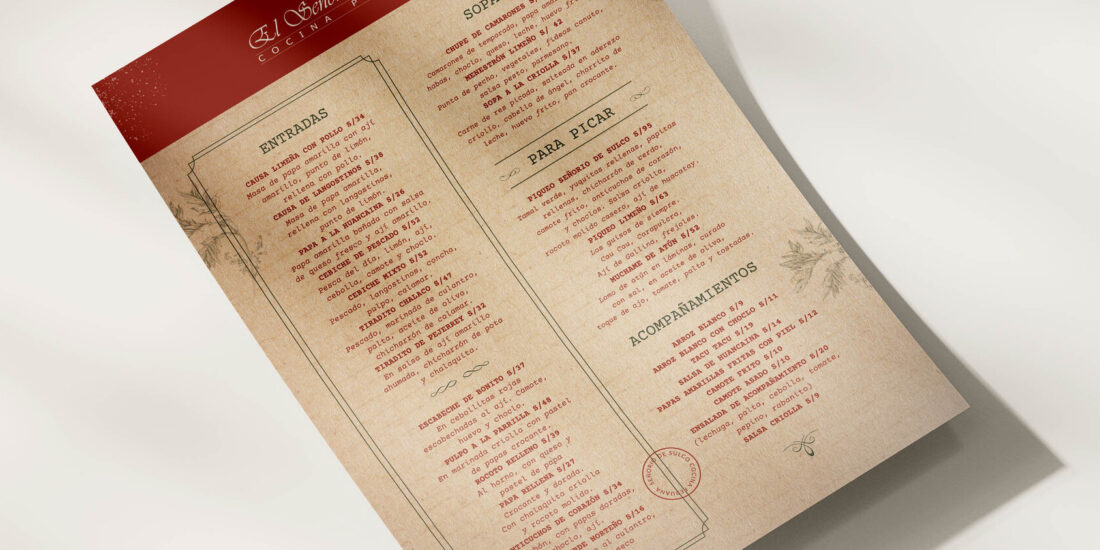 El Señor
COCINA P
ENTRADAS
CAUSA LIMEÑA CON POLLO S/34
Masa de papa amarilla con ají
amarillo, punto de limón,
rellena con pollo.
CAUSA DE LANGOSTINOS S/38
Masa de papa amarilla,
rellena con langostinos,
punto de limón.
PAPA A LA HUANCAINA S/26
Papa amarilla bañada con salsa
de queso fresco y ají amarillo.
CEBICHE DE PESCADO S/52
Pesca del día, limón, ají,
cebolla, camote y choclo.
CEBICHE MIXTO S/52
Pescado, langostinos, concha,
pulpo, calamar.
TIRADITO CHALACO S/47
Pescado, marinada de culantro,
palta, aceite de oliva,
chicharrón de calamar.
TIRADITO DE PEJERREY S/32
En salsa de ají amarillo
ahumada, chicharrón de pota
y chalaquita.
ESCABECHE DE BONITO S/37
En cebollitas rojas
escabechadas al ají. Camote,
huevo y choclo.
PULPO A LA PARRILLA S/48
En marinada criollo con pastel
de papas crocante.
ROCOTO RELLENO S/39
Al horno, con queso y
pastel de papa
PAPA RELLENA S/27
Crocante y dorada.
Con chalaquita criolla
y rocoto molido.
ANTICUCHOS DE CORAZÓN S/34
con papas doradas,
choclo, ají.
NORTEÑO S/16
al culantro,
seco
SOPA
CHUPE DE CAMARONES S/
Camarones de temporada, papa
habas, choclo, queso, leche, huevo
MENESTRÓN LIMEÑO S/ 42
Punta de pecho, vegetales, fideos canuto,
salsa pesto, parmesano.
SOPA A LA CRIOLLA S/37
Carne de res picada, salteada en aderezo
criollo, cabello de ángel, chorrito de
leche, huevo frito, pan crocante.
PARA PICAR
PIQUEO SEÑORIO DE SULCO S/95
Tamal verde, yuquitas rellenas, papitas
rellenas, chicharrón de verdo,
camote frito, anticuchos de corazón,
y choclos. Salsa criolla,
rocoto molido casero, ají de huacatay.
PIQUEO LIMEÑO S/63
Los guisos de siempre.
Cau Cau, Carapulcra,
Ají de Gallina, frejoles.
MUCHAME DE ATÚN S/52
Lomo de atún en láminas, curado
con sal, en aceite de oliva,
toque de ajo, tomate, palta y tostadas.
ACOMPAÑAMIENTOS
ARROZ BLANCO S/9
ARROZ BLANCO CON CHOCLO S/11
TACU TACU S/19
SALSA DE HUANCAINA S/14
PAPAS AMARILLAS FRITAS CON PIEL S/12
CAMOTE FRITO S/10
CAMOTE ASADO S/10
ENSALADA DE ACOMPAÑAMIENTO S/20
(lechuga, palta, cebolla, tomate,
pepino, rabanito)
SALSA CRIOLLA S/9
SEÑORIO DE SULCO COCINA PERUANA